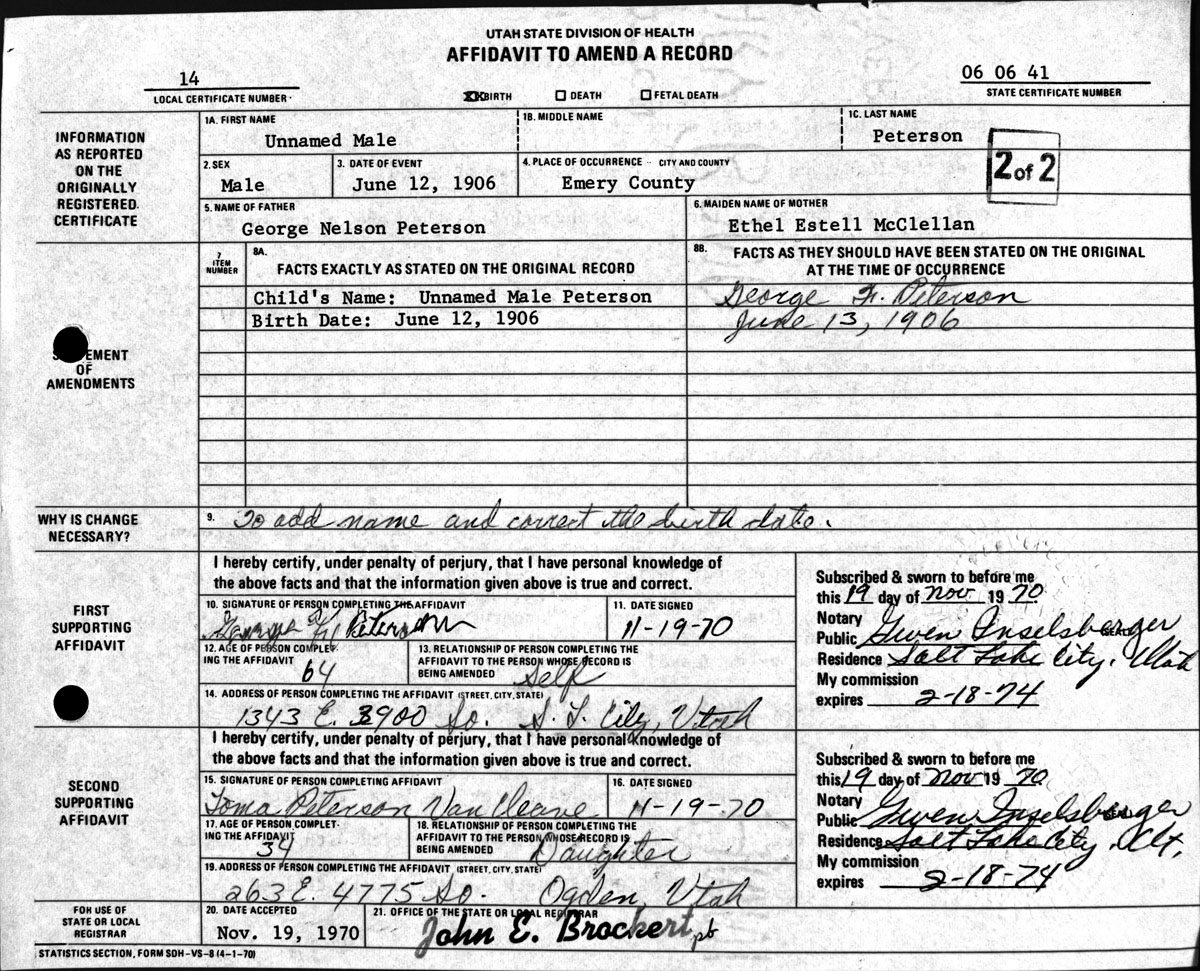 UTAH STATE DIVISION OF HEALTH
AFFIDAVIT TO AMEND A RECORD
14
LOCAL CERTIFICATE NUMBER
XX BIRTH
☐ DEATH
☐ FETAL DEATH
06 06 41
STATE CERTIFICATE NUMBER
INFORMATION
AS REPORTED
ON THE
ORIGINALLY
REGISTERED
CERTIFICATE
1A. FIRST NAME
Unnamed Male
1B. MIDDLE NAME
1C. LAST NAME
Peterson
2 of 2
2. SEX
Male
3. DATE OF EVENT
June 12, 1906
4. PLACE OF OCCURRENCE -- CITY AND COUNTY
Emery County
5. NAME OF FATHER
George Nelson Peterson
6. MAIDEN NAME OF MOTHER
Ethel Estell McClellan
EMENT
OF
AMENDMENTS
7
ITEM
NUMBER
8A.
FACTS EXACTLY AS STATED ON THE ORIGINAL RECORD
8B.
FACTS AS THEY SHOULD HAVE BEEN STATED ON THE ORIGINAL
AT THE TIME OF OCCURRENCE
Child's Name: Unnamed Male Peterson
George F. Peterson
Birth Date: June 12, 1906
June 13, 1906
WHY IS CHANGE
NECESSARY?
9. To add name and correct the birth date.
FIRST
SUPPORTING
AFFIDAVIT
I hereby certify, under penalty of perjury, that I have personal knowledge of
the above facts and that the information given above is true and correct.
10. SIGNATURE OF PERSON COMPLETING THE AFFIDAVIT
George Peterson
11. DATE SIGNED
11-19-70
12. AGE OF PERSON COMPLET-
ING THE AFFIDAVIT
64
13. RELATIONSHIP OF PERSON COMPLETING THE
AFFIDAVIT TO THE PERSON WHOSE RECORD IS
BEING AMENDED Self
14. ADDRESS OF PERSON COMPLETING THE AFFIDAVIT (STREET, CITY, STATE)
1343 E. 3900 So. S. L. City, Utah
Subscribed & sworn to before me
this 19 day of Nov 19 70
Notary
Public Gwen Inselsberger
Residence Salt Lake City, Utah
My commission
expires 2-18-74
SECOND
SUPPORTING
AFFIDAVIT
I hereby certify, under penalty of perjury, that I have personal knowledge of
the above facts and that the information given above is true and correct.
15. SIGNATURE OF PERSON COMPLETING AFFIDAVIT
Toma Peterson Van Cleave
16. DATE SIGNED
11-19-70
17. AGE OF PERSON COMPLET-
ING THE AFFIDAVIT
34
18. RELATIONSHIP OF PERSON COMPLETING THE
AFFIDAVIT TO THE PERSON WHOSE RECORD IS
BEING AMENDED Daughter
19. ADDRESS OF PERSON COMPLETING THE AFFIDAVIT (STREET, CITY, STATE)
263 E. 4775 So. Ogden, Utah
Subscribed & sworn to before me
this 19 day of Nov 19 70
Notary
Public Gwen Inselsberger
Residence Salt Lake City, Ut.
My commission
expires 2-18-74
FOR USE OF
STATE OR LOCAL
REGISTRAR
20. DATE ACCEPTED
Nov. 19, 1970
21. OFFICE OF THE STATE OR LOCAL REGISTRAR
John E. Brockert pb
STATISTICS SECTION, FORM SDH-VS-8 (4-1-70)